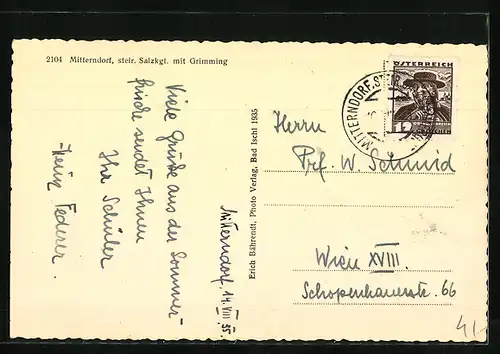 2104 Mitterndorf, steir. Salzkgt. mit Grimming
Viele Grüße aus der Sommer-
frische sendet Ihnen
Ihr Schüler
Heinz Federer.
Mitterndorf, 14. VIII 35.
Erich Bährendt, Photo Verlag, Bad Ischl 1935
ÖSTERREICH
12
MITTERNDORF, STEI
Herrn
Prf. W. Schmid
Wien XVIII.
Schopenhauerstr. 66